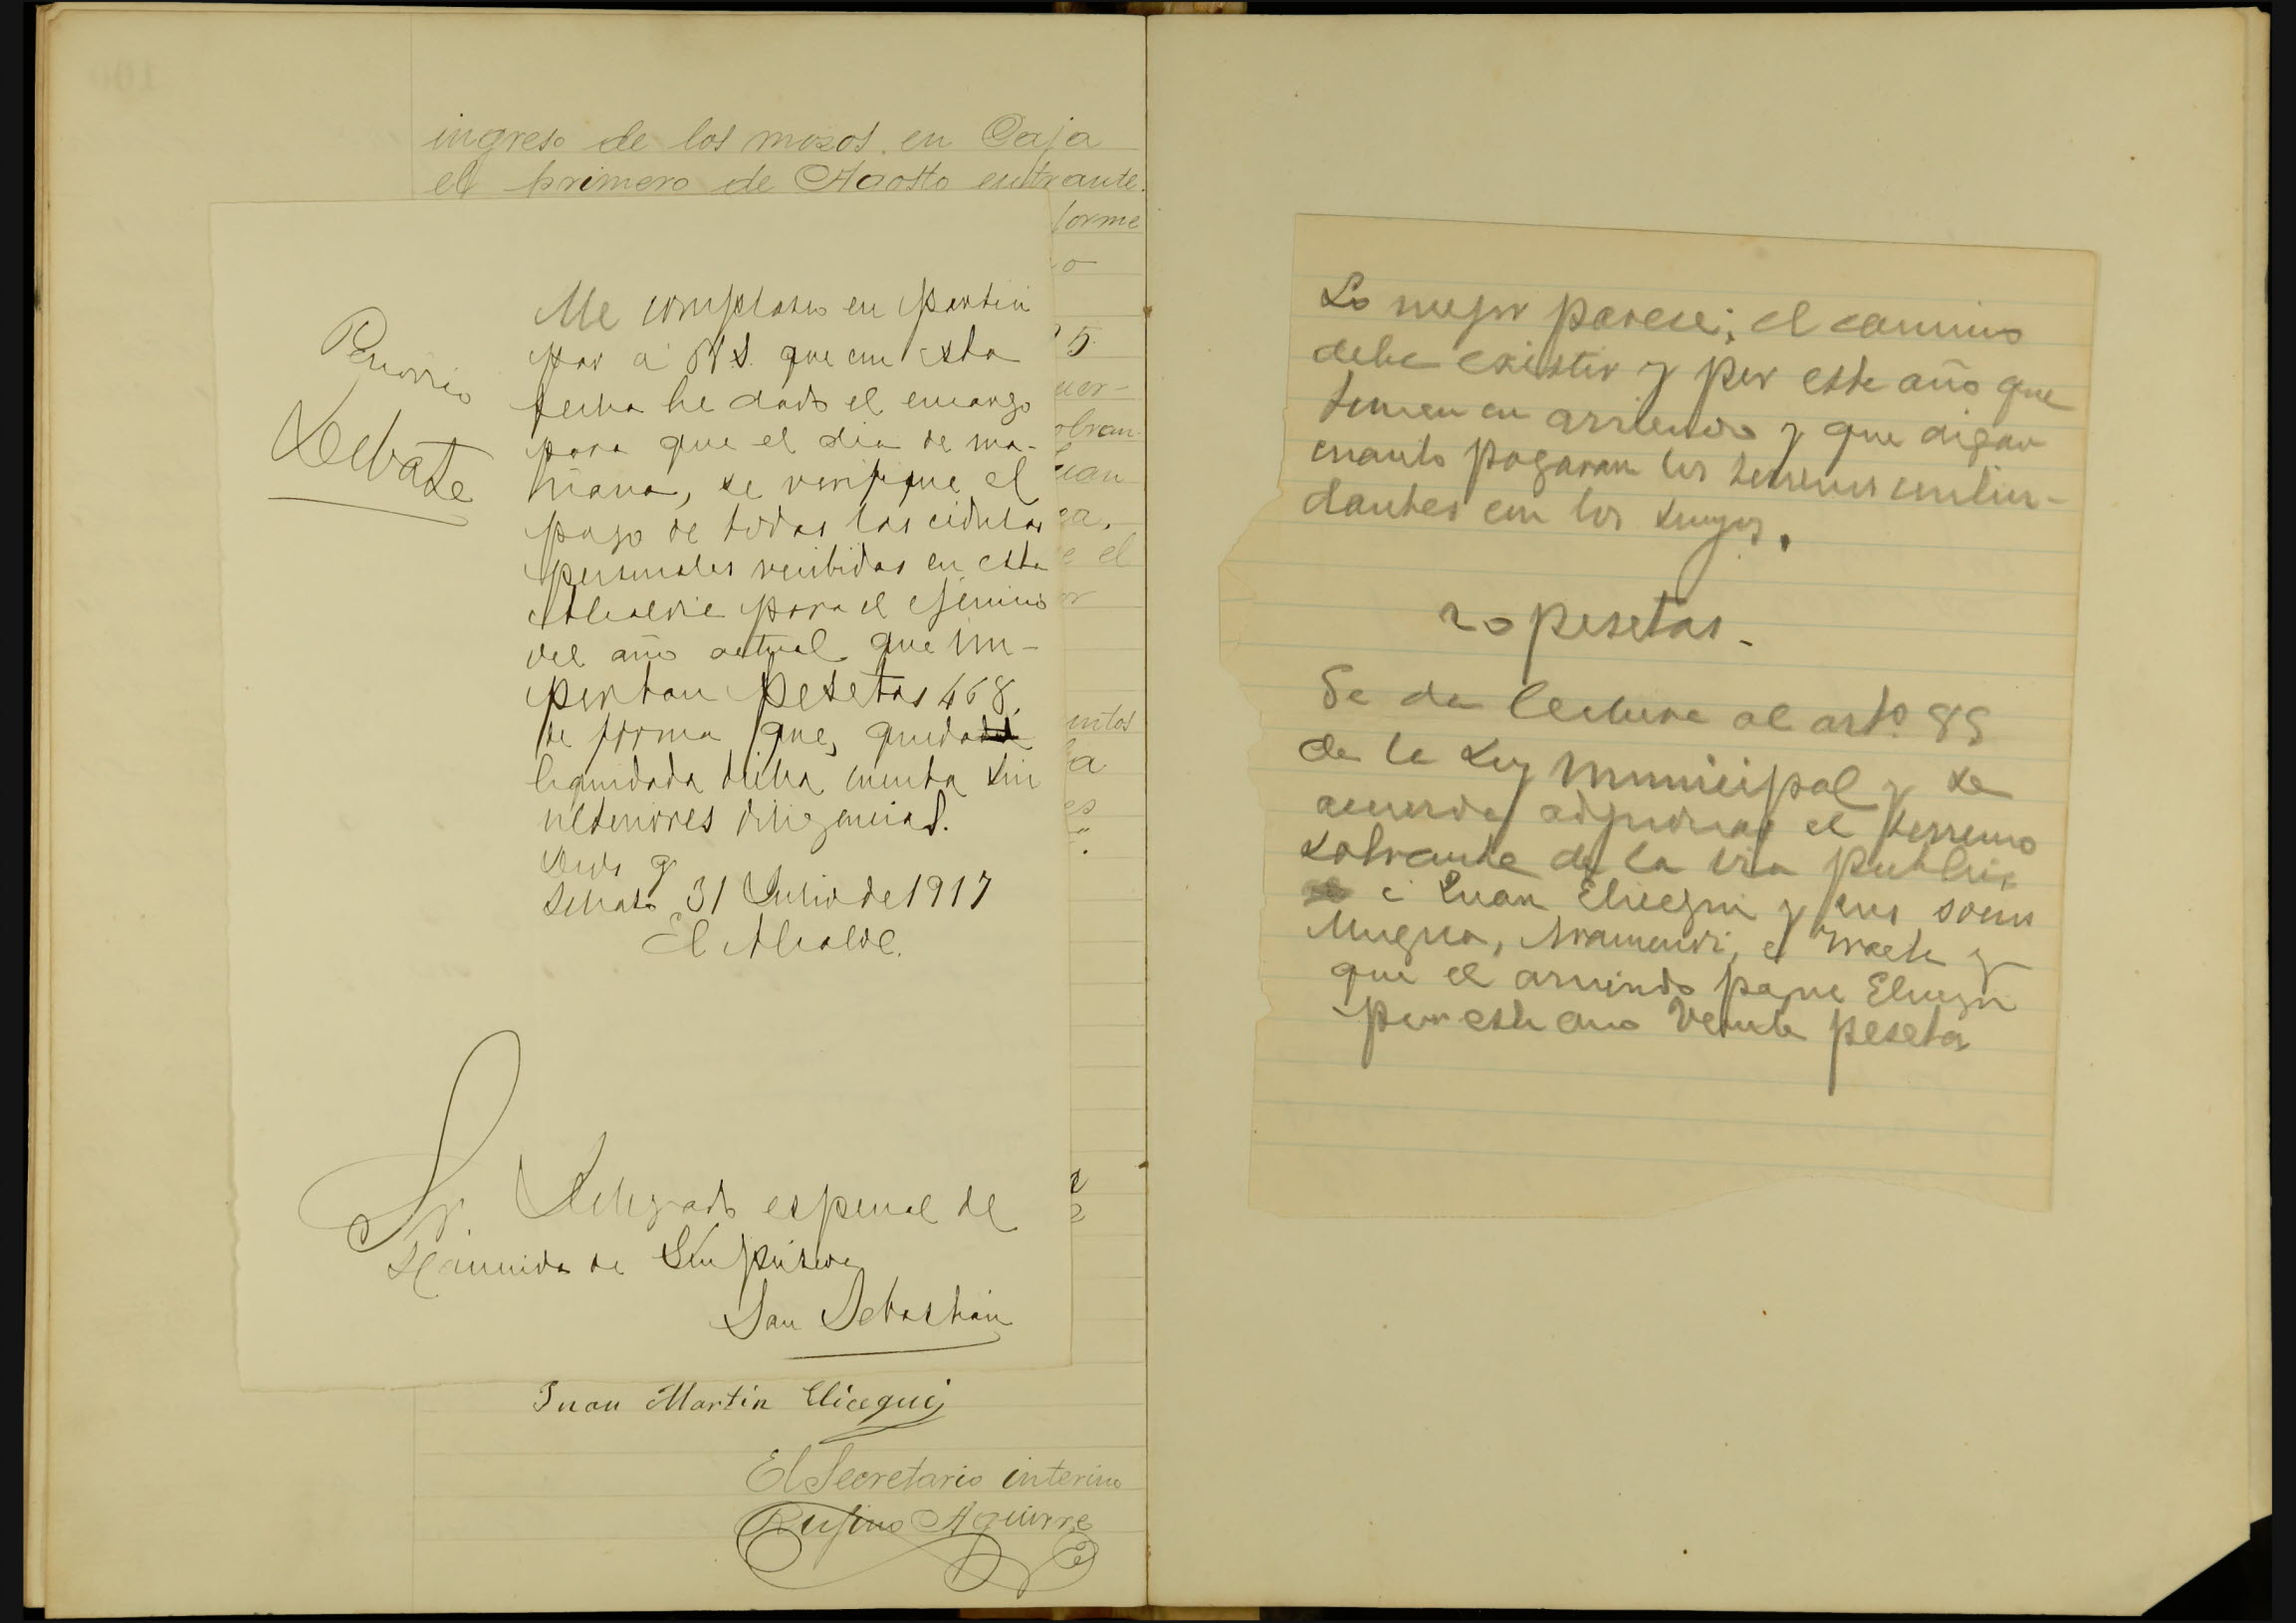 ingreso de los mozos en Caja
el primero de Agosto entrante.
forme
o
5
uer-
obran
uan
ca.
e el
or
untos
a
es
Me complasco en partici
par a V.S. que con esta
fecha he dado el encargo
para que el dia de ma-
ñana, se verifique el
pago de todas las cédulas
personales recibidas en esta
Alcaldía para el ejercicio
del año actual que im-
portan pesetas 468,
de forma que, queda
liquidada dicha cuenta sin
ulteriores diligencias.
Dios g
31 Julio de 1917
El Alcalde.
Sr. Delegado especial de
Hacienda de Guipúzcoa
San Sebastián
Juan Martin Elicegui
El Secretario interino
Rufino Aguirre
Lo mejor parece; el camino
debe existir y por este año que
tomen en arriendo y que digan
cuanto pagaran los terrenos colin-
dantes con los suyos.
20 pesetas.
Se da lectura al arto. 85
de la Ley Municipal y se
acuerda adjudicar el terreno
sobrante de la via publica
a Juan Elicegui y sus socios
Mugica, Aramendi, e Iraeta y
que el arriendo pague Elicegui
por este año veinte pesetas